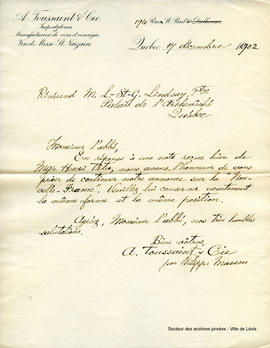 A. Toussaint & Cie
Importateurs
Manufacturiers de vins et vinaigre,
Vin de Messe St. Nazaire
194 Rue St. Paul
Québec 17 décembre 1902
Révérend M. L.-St-G. Lindsay, Ptre
Palais de l'Archevêché
Québec
Monsieur l'abbé,
En réponse à une note reçue hier de
Mgr Henri Têtu, nous avons l'honneur de vous
prier de continuer notre annonce sur la "Nou-
velle-France". Veuillez lui conserver exactement
la même forme et la même position.
Agréez, Monsieur l'abbé, nos très humbles
salutations.
Bien vôtres,
A. Toussaint & Cie
par Philippe Masson
Secteur des archives privées - Ville de Lévis